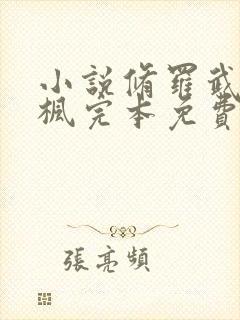 小說脩羅武
楓完本免費
張亮頻